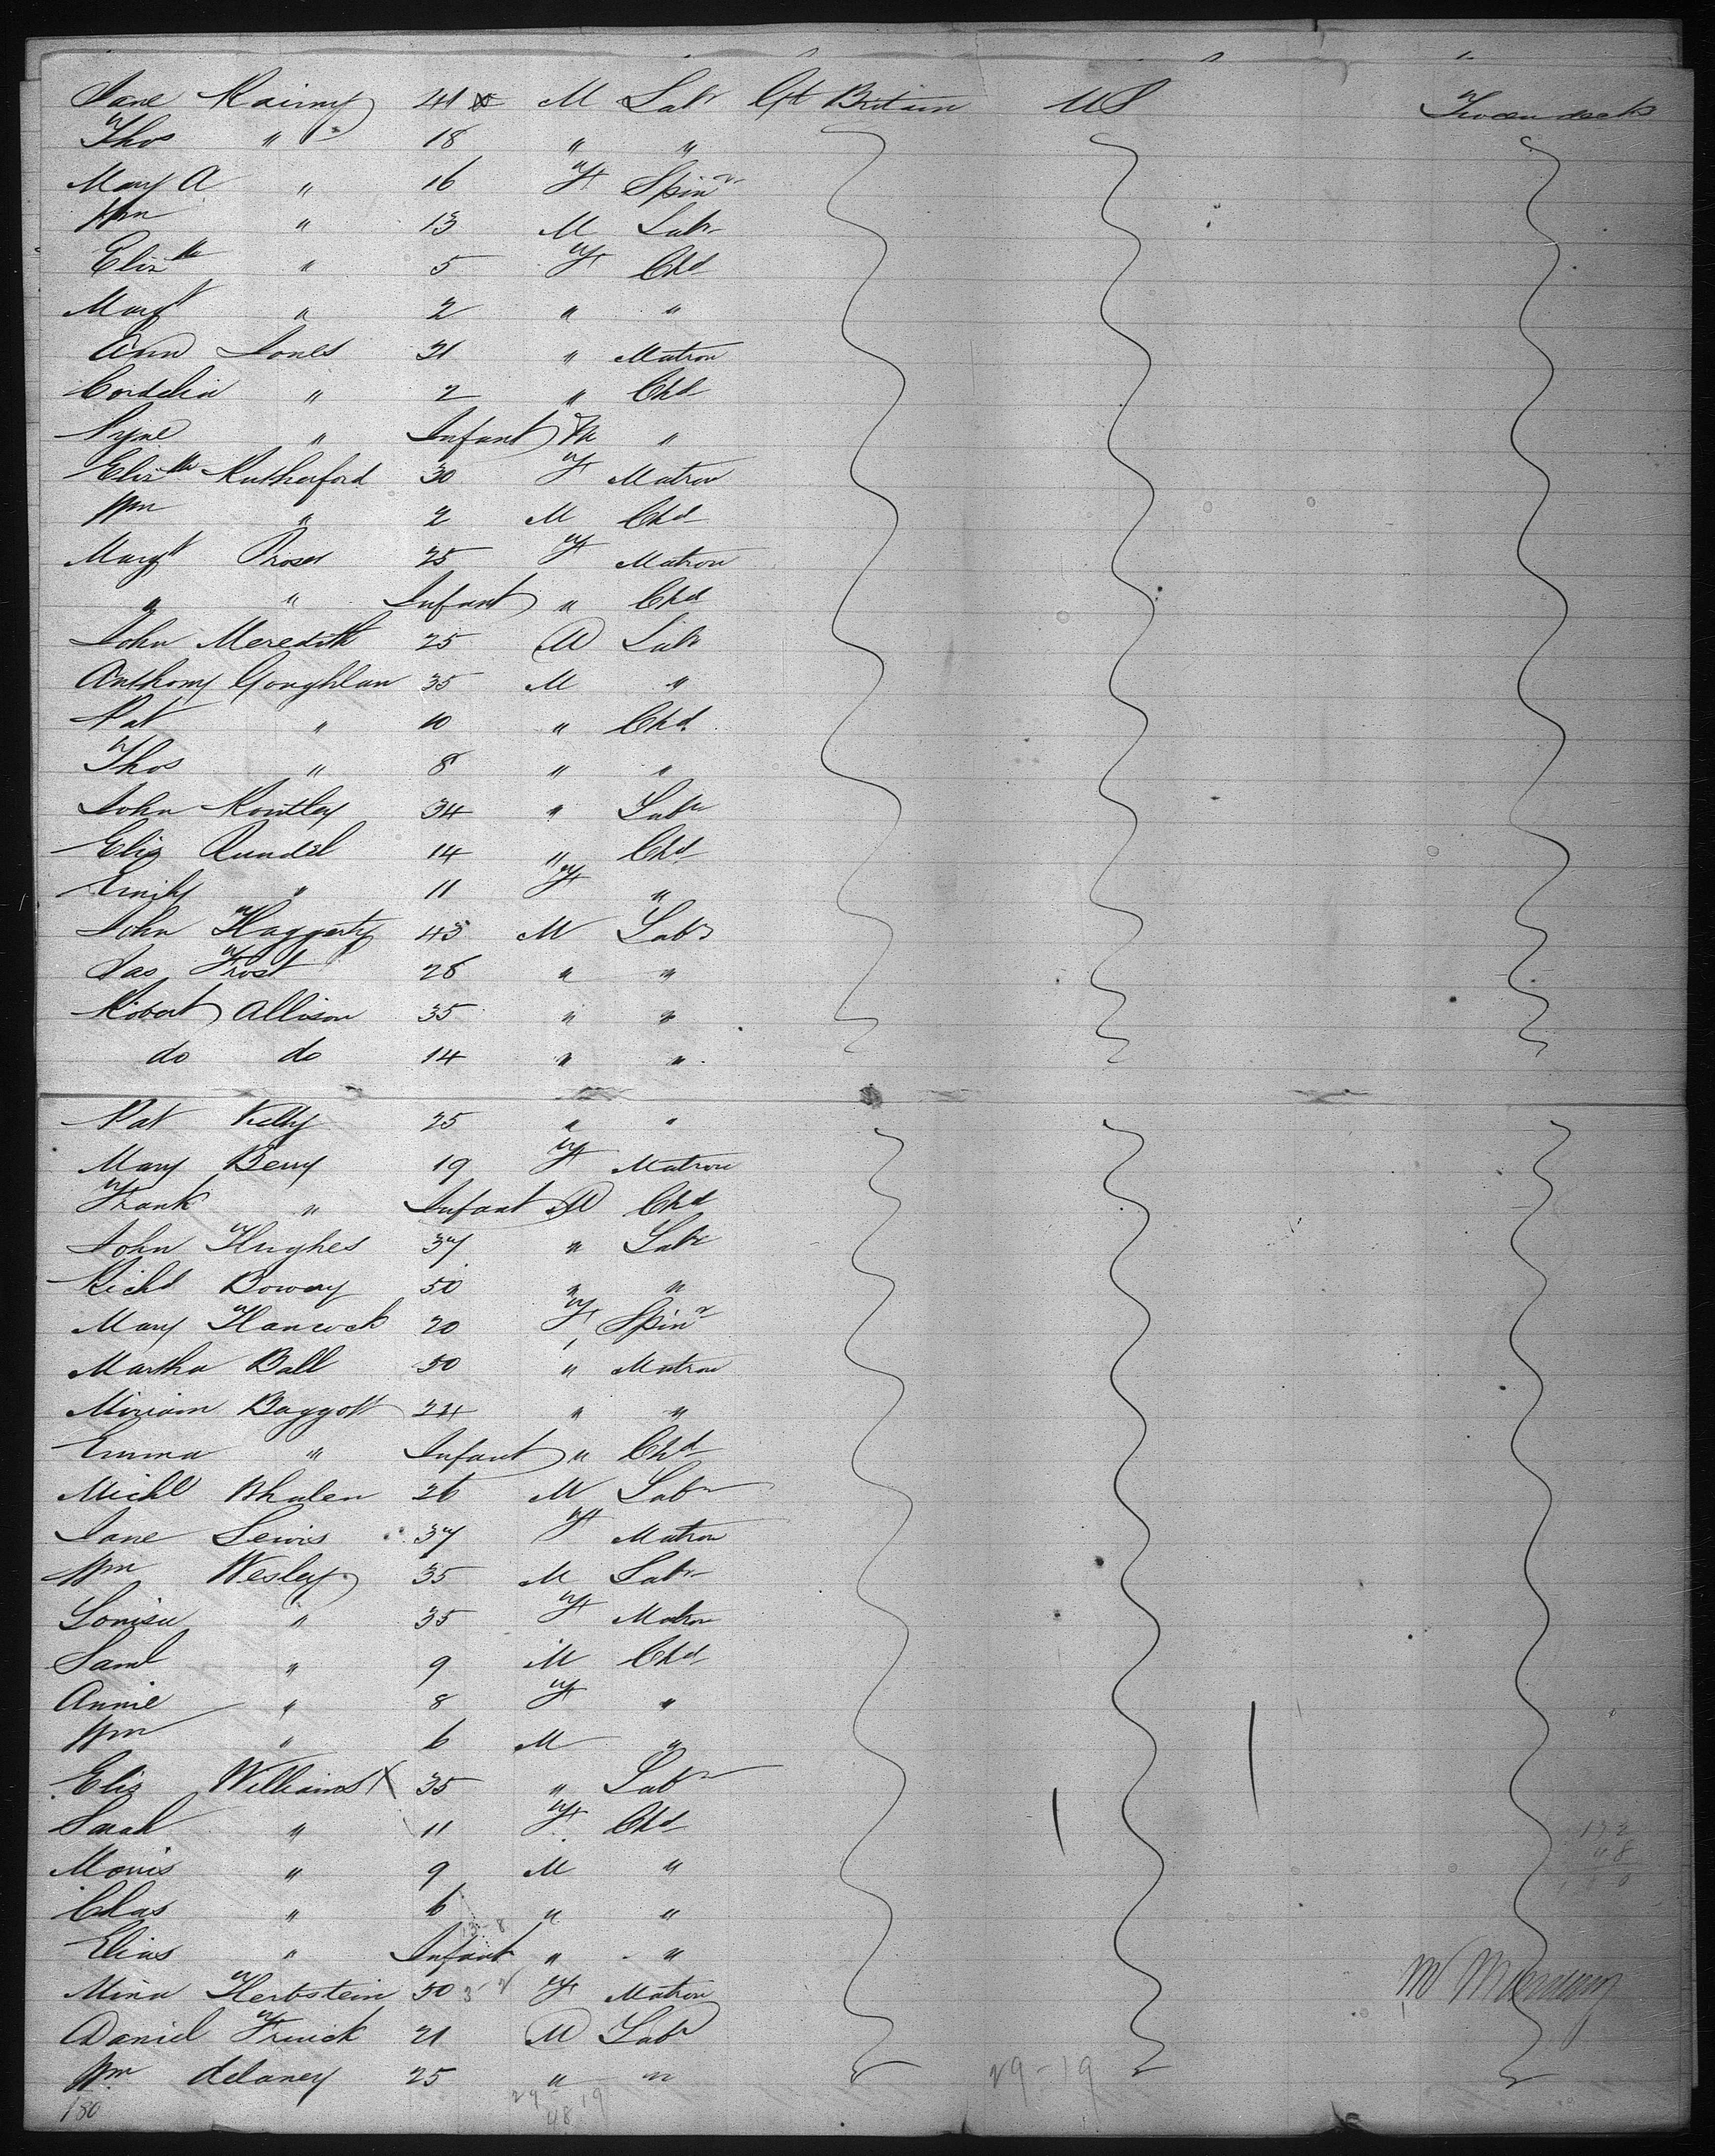 Jane Rainny 41 M Labr Gt Britain US Tween decks
Thos " 18 " "
Mary A " 16 F Spinr
Wm " 13 M Labr
Elizth " 5 F Chd
Margt " 2 " "
Ann Jones 21 " Matron
Cordelia " 2 " Chd
" Infant M "
Elizth Rutherford 30 F Matron
Wm " 2 M Chd
Margt Prosser 25 F Matron
" " Infant " Chd
John Meredith 25 M Labr
Anthony Goughlan 35 M "
Pat " 10 " Chd
Thos " 8 " "
John 34 " Labr
Eliz Rundel 14 " Chd
Emily " 11 F "
John Haggerty 43 M Labr
Jas Frost 28 " "
Robert Allison 35 " "
do do 14 " "
Pat Kelly 25 " "
Mary Berry 19 F Matron
Frank " Infant M Chd
John Hughes 37 " Labr
Richd Bowery 50 " "
Mary Hancock 20 F Spinr
Martha Ball 50 " Matron
Miriam Baggott 24 " "
Emma " Infant " Chd
Michl Whalen 26 M Labr
Jane Lewis 37 F Matron
Wm Wesley 35 M Labr
Louisa " 35 F Matron
Saml " 9 M Chd
Annie " 8 F "
Wm " 6 M "
Eliz Williams X 35 " Labr
Sarah " 11 F Chd
Morris " 9 M "
Chas " 6 " "
Elias " Infant " "
Mina Herbstein 30 F Matron
Daniel 21 M Labr
Wm delaney 25 " "
180 29 19 29-19
48